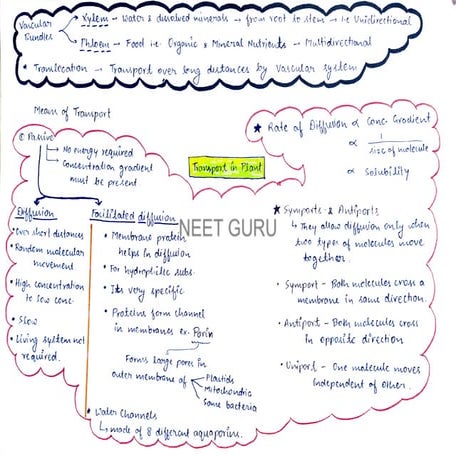 Vascular Bundles
Xylem → Water & dissolved minerals → from root to stem → i.e Unidirectional
Phloem → Food i.e. Organic & Mineral Nutrients → Multidirectional
* Translocation → Transport over long distances by Vascular system
Means of Transport
① Passive
→ No energy required
→ Concentration gradient
must be present
Transport in Plant
★ Rate of Diffusion ∝ Conc. Gradient
∝ 1/size of molecule
∝ Solubility
Diffusion
• Over short distances
• Random molecular
movement
• High concentration
to low conc
• Slow
• Living system not
required.
Facilitated diffusion
• Membrane protein
helps in diffusion
• For hydrophilic subs.
• Its very specific
• Proteins form channel
in membranes ex. Porin
Forms large pores in
outer membrane of
Plastids
Mitochondria
Some bacteria
• Water Channels
↳ made of 8 different aquaporins.
NEET GURU
★ Symports & Antiports
↳ They allow diffusion only when
two types of molecules move
together
• Symport - Both molecules cross a
membrane in same direction.
• Antiport - Both molecules cross
in opposite direction
• Uniport - One molecule moves
independent of other.